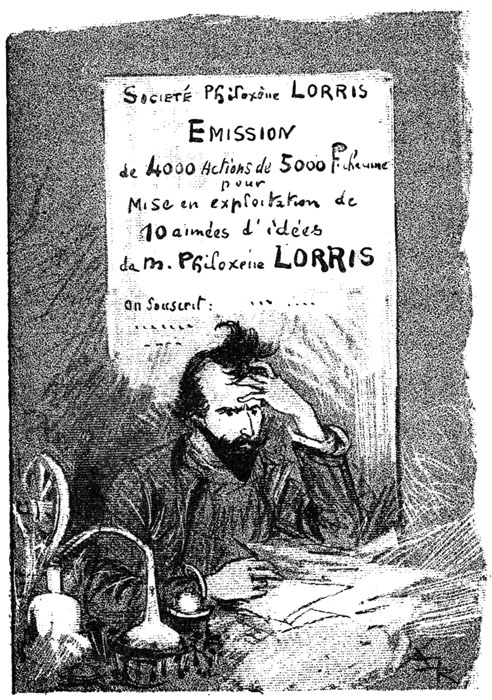 SOCIETÉ Philoxène LORRIS
EMISSION
de 4000 Actions de 5000 F. chacune
pour
Mise en exploitation de
10 années d'idées
de M. Philoxène LORRIS
on souscrit :